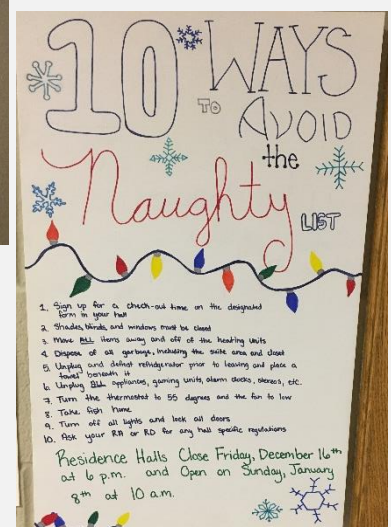 10 WAYS
TO AVOID
the
Naughty
LIST
1. Sign up for a check-out time on the designated
form in your hall
2. Shades, blinds, and windows must be closed
3. Move ALL items away and off of the heating units
4. Dispose of all garbage, including the suite area and closet
5. Unplug and defrost refridgerator prior to leaving and place a
towel beneath it
6. Unplug ALL appliances, gaming units, alarm clocks, stereos, etc.
7. Turn the thermostat to 55 degrees and the fan to low
8. Take fish home
9. Turn off all lights and lock all doors
10. Ask your RA or RD for any hall specific regulations
Residence Halls Close Friday, December 16th
at 6 p.m. and Open on Sunday, January
8th at 10 a.m.